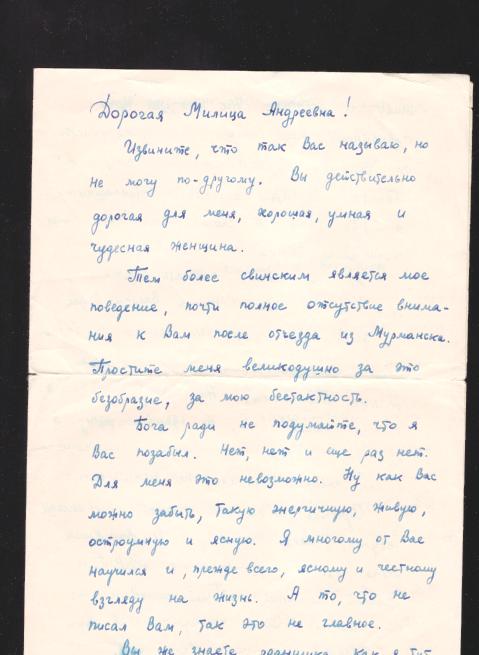 Дорогая Милица Андреевна!
Извините, что так Вас называю, но
не могу по-другому. Вы действительно
дорогая для меня, хорошая, умная и
чудесная женщина.
Тем более свинским является мое
поведение, почти полное отсутствие внима-
ния к Вам после отъезда из Мурманска.
Простите меня великодушно за это
безобразие, за мою бестактность.
Бога ради не подумайте, что я
Вас позабыл. Нет, нет и еще раз нет.
Для меня это невозможно. Ну как Вас
можно забыть, такую энергичную, живую,
остроумную и ясную. Я многому от Вас
научился и, прежде всего, ясному и честному
взгляду на жизнь. А то, что не
писал Вам, так это не главное.
Вы же знаете как я тут